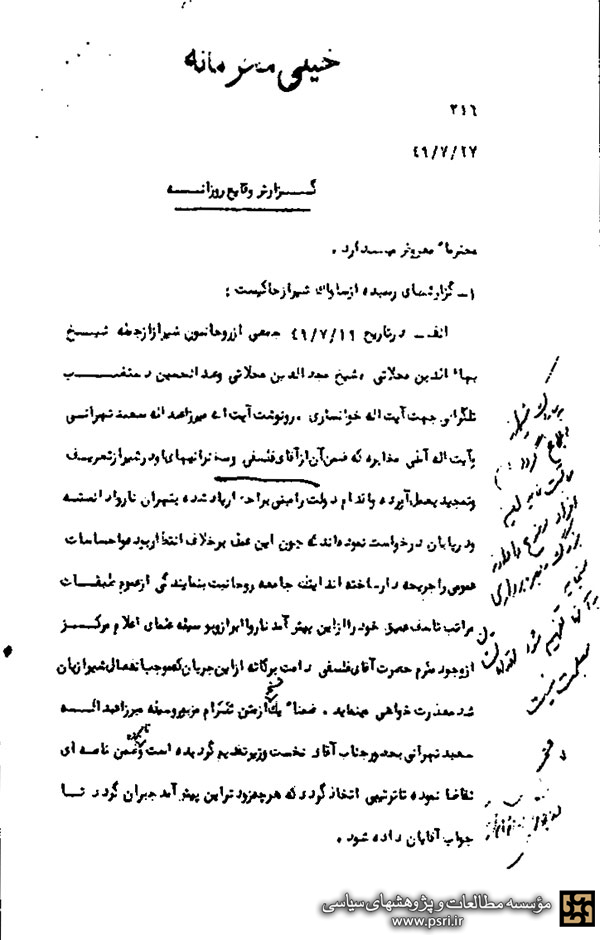 خیلی محرمانه
۳۱۶
۴۹/۷/۲۷
گزارش وقایع روزانه
محترماً معروض میدارد .
۱- گزارشهای رسیده از ساواک شیراز حاکیست :
الف - در تاریخ ۴۹/۷/۱۹ جمعی از روحانیون شیراز از جمله شیخ
بهاءالدین محلاتی و شیخ مجدالدین محلاتی و عبدالحسین دستغیب
تلگرافی جهت آیت اله خوانساری . رونوشت آیت اله میرزا عبداله سعید تهرانی
و آیت اله آملی مخابره که ضمن آن از آقای فلسفی و سخنرانیهای او در شیراز تعریف
و تمجید بعمل آورده و اقدام دولت را مبنی بر احضار یاد شده بتهران ناروا دانسته
و در پایان درخواست نموده‌اند که چون این عمل بر خلاف انتظار بود و احساسات
عمومی را جریحه دار ساخته اند اینک جامعه روحانیت بنمایندگی از عموم طبقات
مراتب تاسف عمیق خود را از این پیش آمد ناروا ابراز و بوسیله علمای اعلام مرکز
از وجود محترم حضرت آقای فلسفی دامت برکاته از این جریان که موجب انفعال شیرازیان
شد معذرت خواهی مینماید . ضمناً یک نسخه از متن تلگرام مزبور وسیله میرزا عبداله
سعید تهرانی بحضور جناب آقای نخست وزیر تقدیم گردیده است و نامبرده ضمن نامه ای
تقاضا نموده تا ترتیبی اتخاذ گردد که هر چه زودتر این پیش آمد جبران گردد تا
جواب آقایان داده شود .
مؤسسه مطالعات و پژوهشهای سیاسی
www.psri.ir